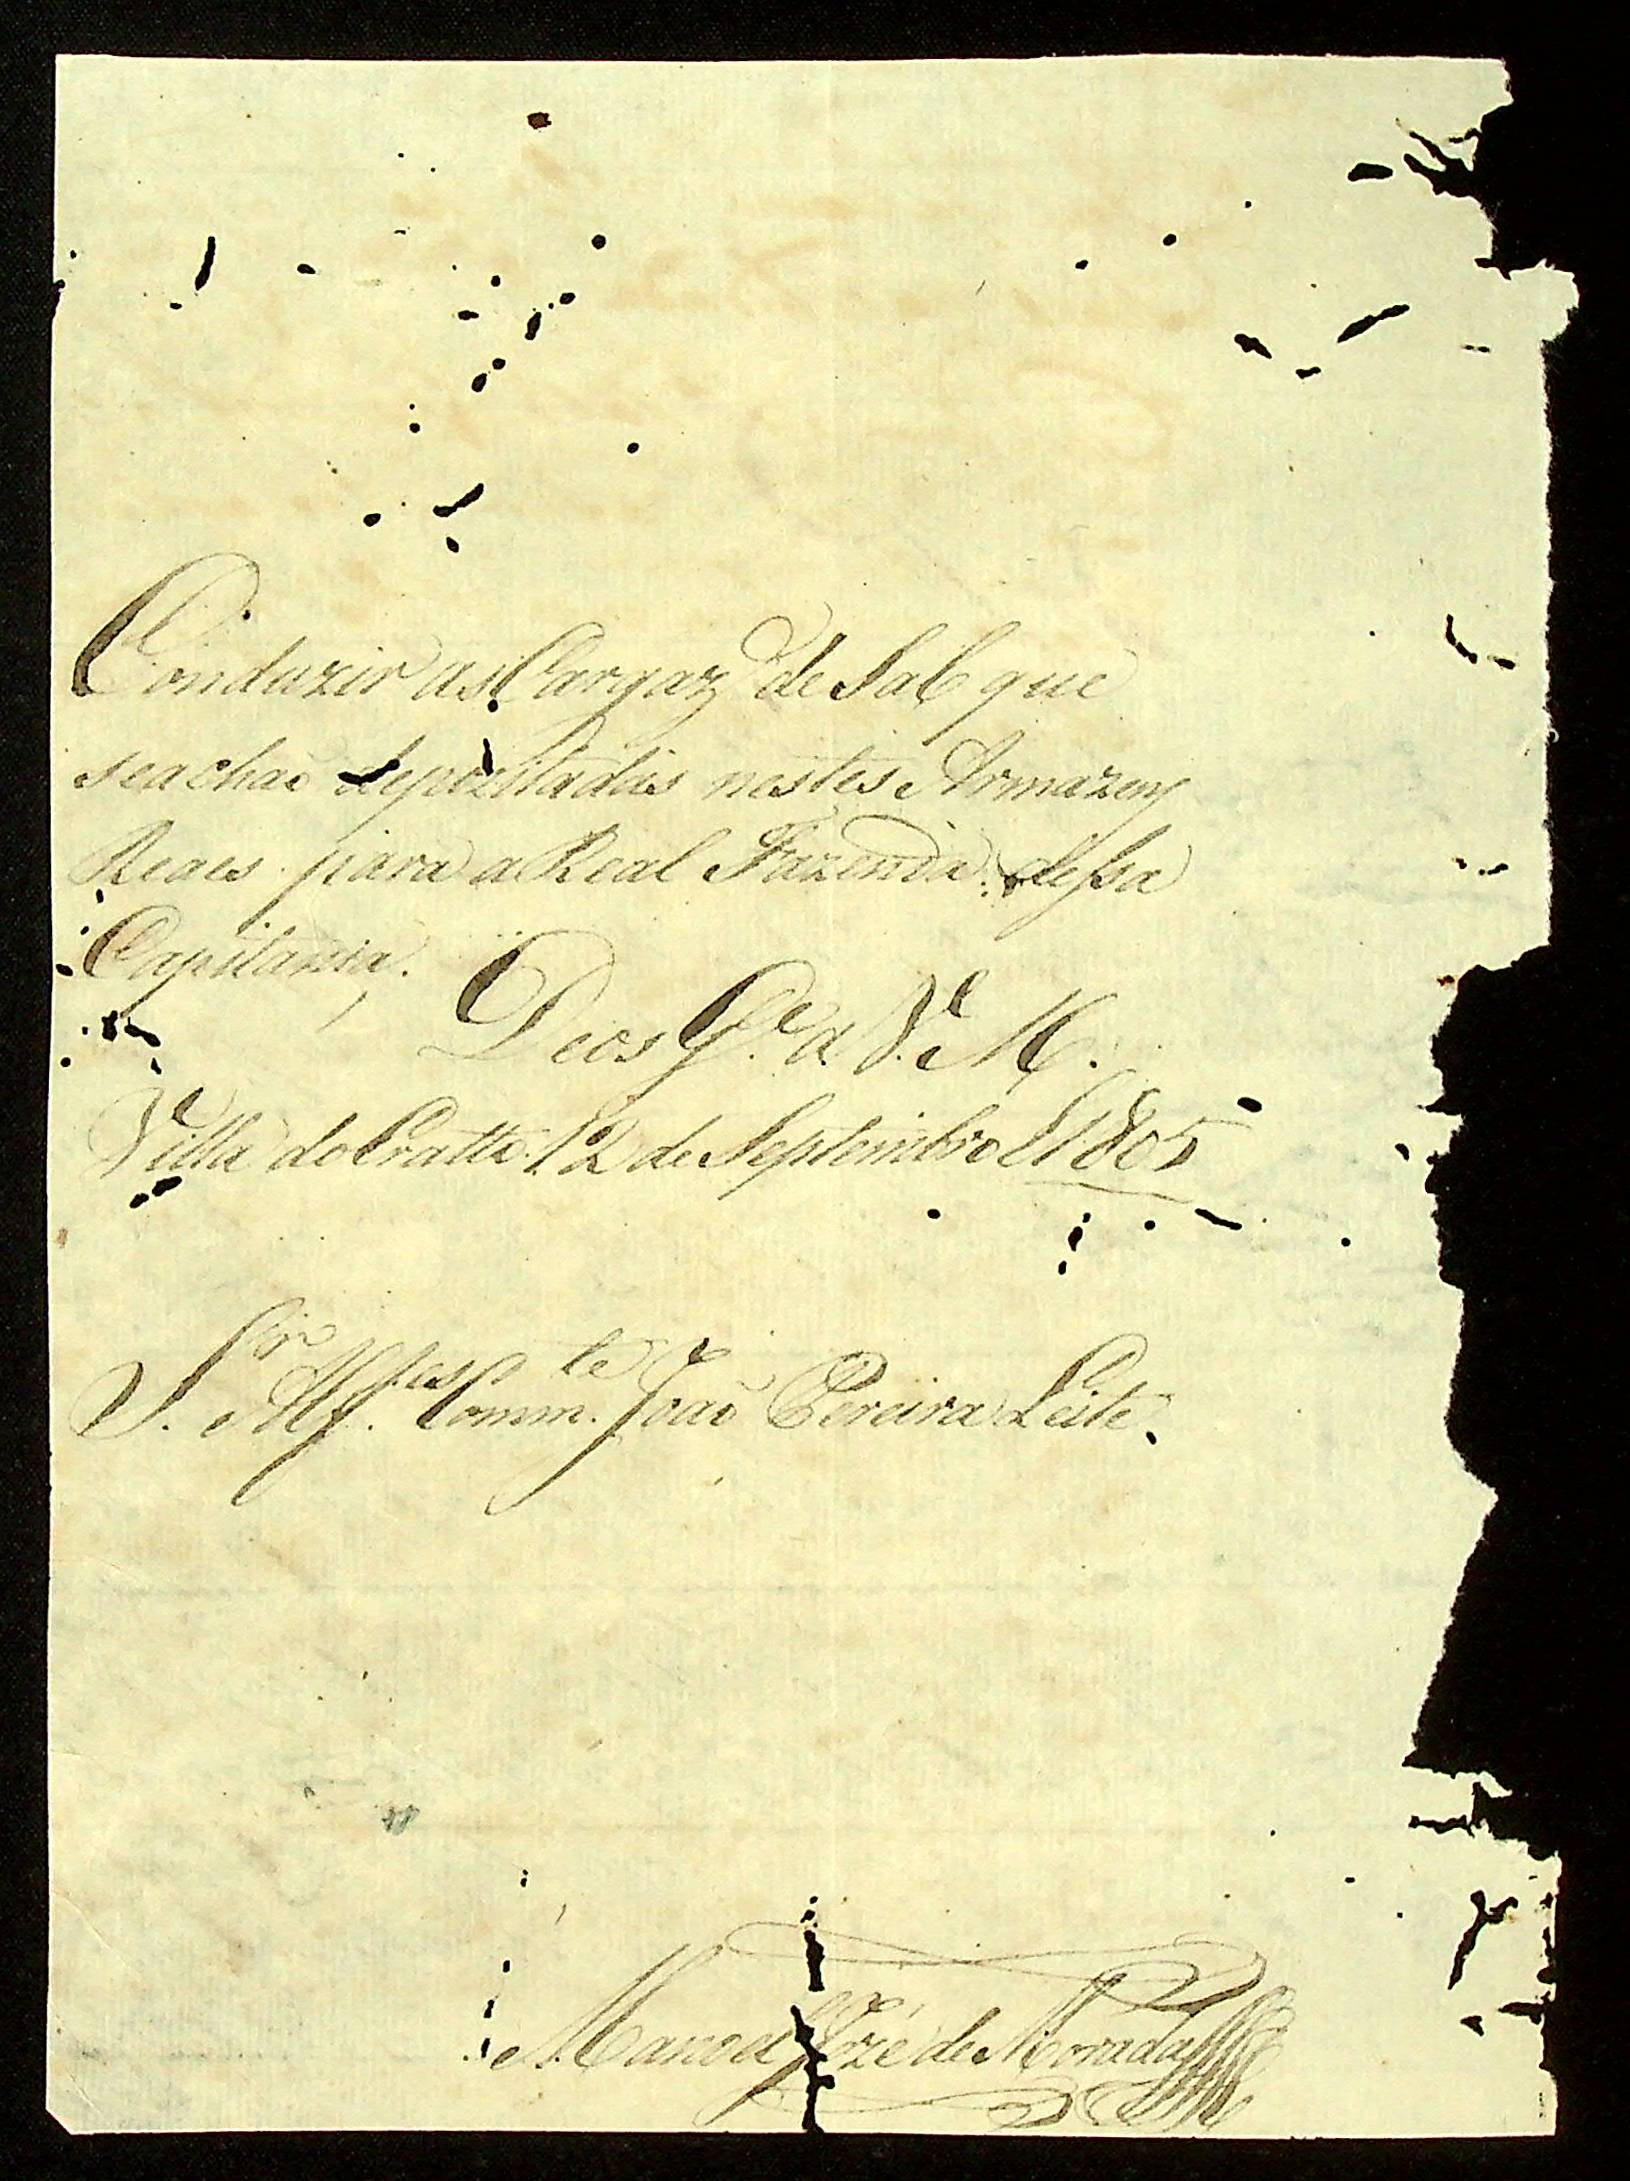 Conduzir as Cargaz de Sal que
seachaõ depozitadas nestes Armazens
Reaes para a Real Fazenda dessa
Capitania.
Deos G.e a V. M.
Villa do Cratto 12 de Septembro 1805
S.r Alf.es Comm.te João Pereira Leite.
Manoel Joze de Morada